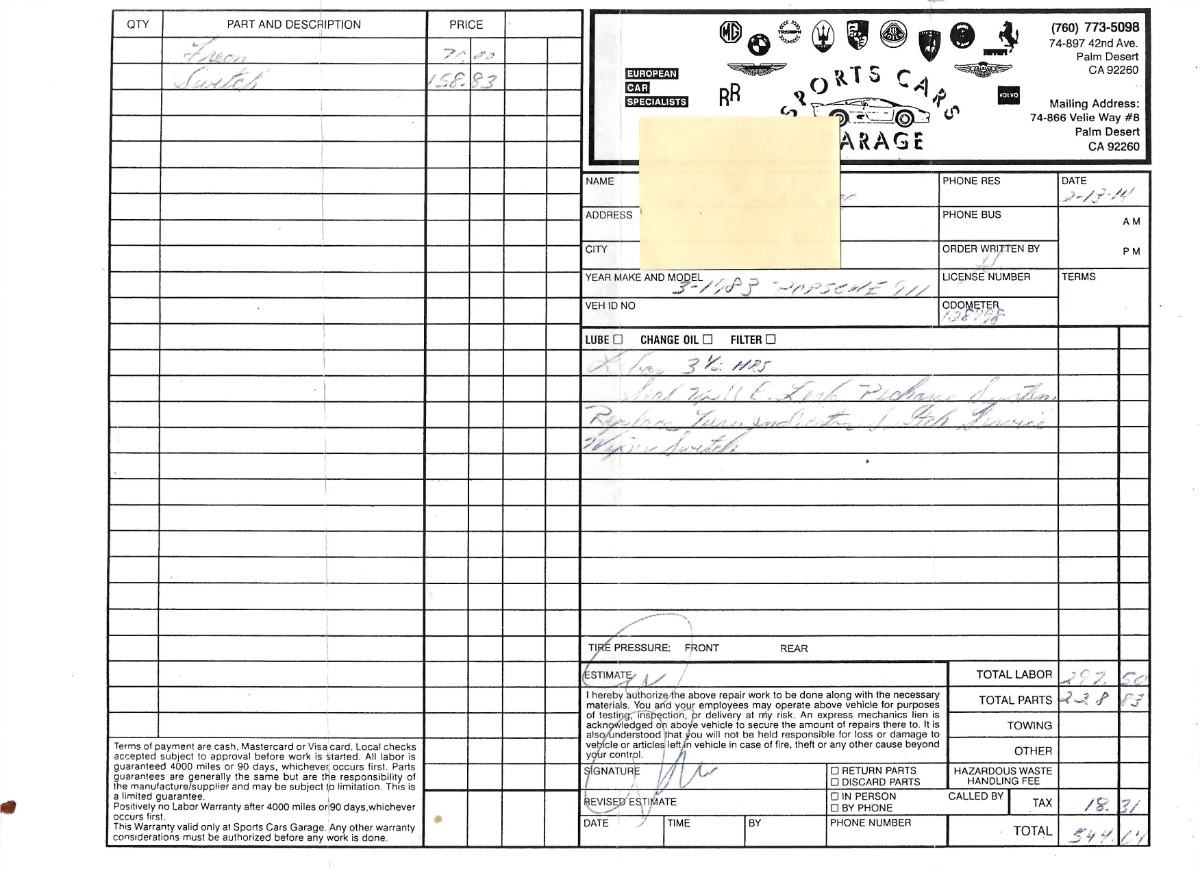 QTY PART AND DESCRIPTION PRICE
Freon 70.00
Switch 158.83
MG
TRIUMPH
EUROPEAN
CAR
SPECIALISTS
RR
SPORTS CARS
ARAGE
VOLVO
(760) 773-5098
74-897 42nd Ave.
Palm Desert
CA 92260
Mailing Address:
74-866 Velie Way #8
Palm Desert
CA 92260
NAME PHONE RES DATE
2-13-14
ADDRESS PHONE BUS A M
CITY ORDER WRITTEN BY P M
YEAR MAKE AND MODEL LICENSE NUMBER TERMS
3-1983 PORSCHE 911
VEH ID NO ODOMETER
LUBE CHANGE OIL FILTER
Labor 3 1/2 HRS
Leak Recharge System
Replace Turn indicator Switch Service
Wiper Switch
TIRE PRESSURE: FRONT REAR
ESTIMATE
I hereby authorize the above repair work to be done along with the necessary
materials. You and your employees may operate above vehicle for purposes
of testing, inspection, or delivery at my risk. An express mechanics lien is
acknowledged on above vehicle to secure the amount of repairs there to. It is
also understood that you will not be held responsible for loss or damage to
vehicle or articles left in vehicle in case of fire, theft or any other cause beyond
your control.
SIGNATURE
RETURN PARTS
DISCARD PARTS
REVISED ESTIMATE
IN PERSON
BY PHONE
CALLED BY
DATE TIME BY PHONE NUMBER
TOTAL LABOR 297.50
TOTAL PARTS 228 83
TOWING
OTHER
HAZARDOUS WASTE
HANDLING FEE
TAX 18.31
TOTAL 544.64
Terms of payment are cash, Mastercard or Visa card. Local checks
accepted subject to approval before work is started. All labor is
guaranteed 4000 miles or 90 days, whichever occurs first. Parts
guarantees are generally the same but are the responsibility of
the manufacture/supplier and may be subject to limitation. This is
a limited guarantee.
Positively no Labor Warranty after 4000 miles or 90 days, whichever
occurs first.
This Warranty valid only at Sports Cars Garage. Any other warranty
considerations must be authorized before any work is done.